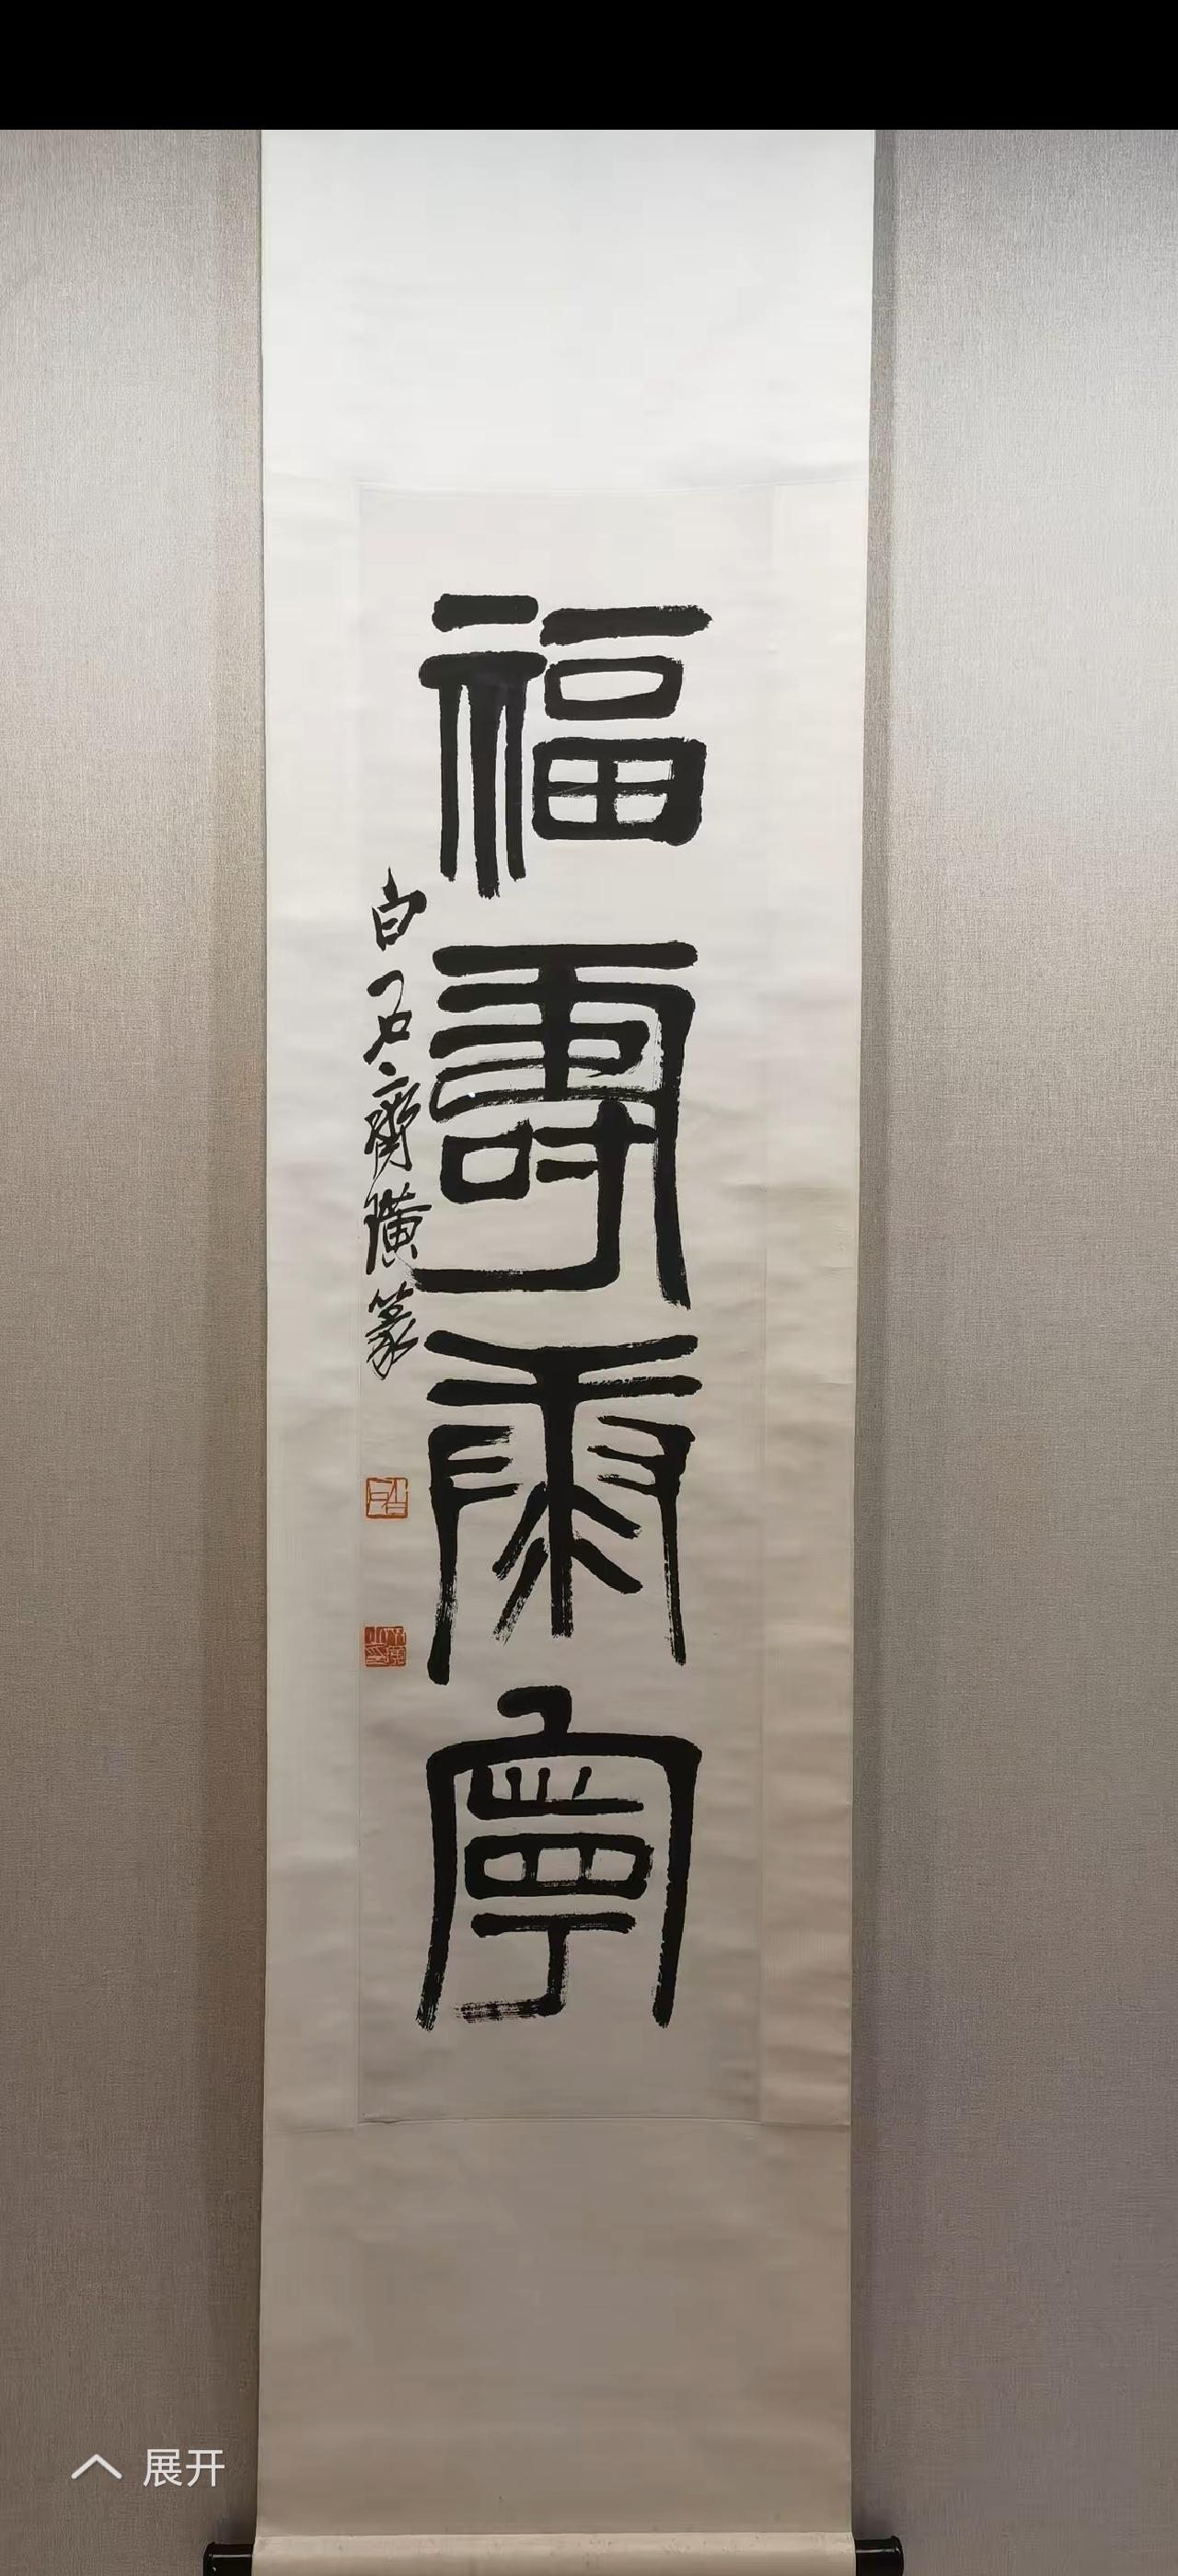 福壽康寧
白石齊璜篆
展开